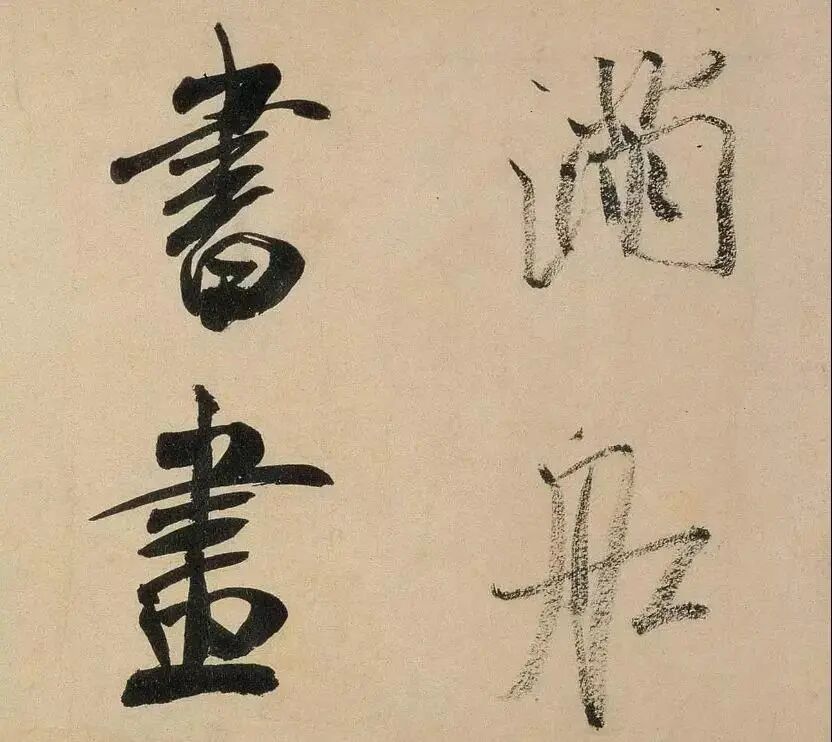 滿船
書畫